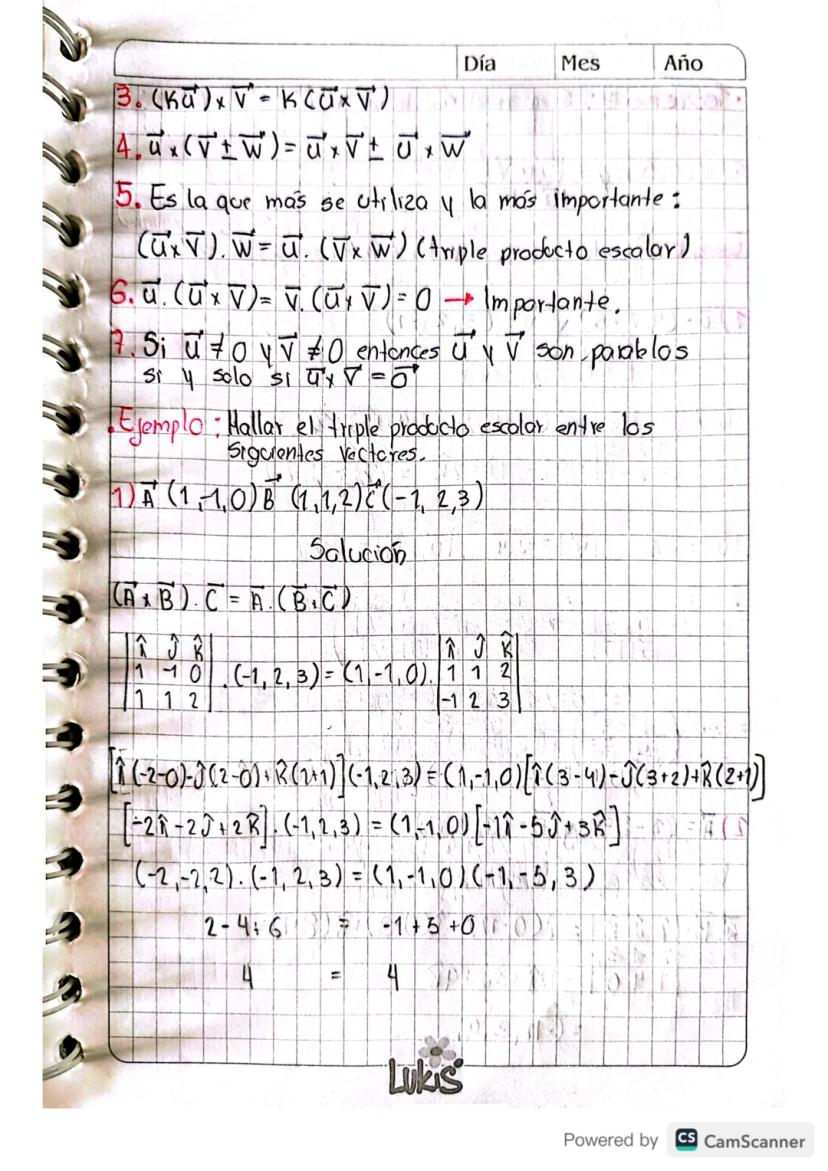 Día Mes Año
3. (Ku⃗) x v⃗ = K (u⃗ x v⃗)
4. u⃗ x (v⃗ ± w⃗) = u⃗ x v⃗ ± u⃗ x w⃗
5. Es la que más se utiliza y la más importante:
(u⃗ x v⃗) . w⃗ = u⃗ . (v⃗ x w⃗) (triple producto escalar)
6. u⃗ . (u⃗ x v⃗) = v⃗ . (u⃗ x v⃗) = 0 → Importante.
7. Si u⃗ ≠ 0 y v⃗ ≠ 0 entonces u⃗ y v⃗ son paralelos
si y solo si u⃗ x v⃗ = 0⃗
. Ejemplo: Hallar el triple producto escalar entre los
siguientes vectores.
1) A⃗ (1,-1,0) B⃗ (1,1,2) C⃗ (-1, 2,3)
Solución
(A⃗ x B⃗) . C⃗ = A⃗ . (B⃗ x C⃗)
|î ĵ k̂| |î ĵ k̂|
|1 -1 0| . (-1, 2, 3) = (1,-1,0) . |1 1 2|
|1 1 2| |-1 2 3|
[î(-2-0)-ĵ(2-0)+k̂(1+1)](-1,2,3) = (1,-1,0)[î(3-4)-ĵ(3+2)+k̂(2+1)]
[-2î -2ĵ + 2k̂] . (-1,2,3) = (1,-1,0) [-1î -5ĵ + 3k̂]
(-2,-2,2) . (-1, 2, 3) = (1,-1,0) (-1,-5, 3)
2-4+6 = -1+5+0
4 = 4
Lukis
Powered by CS CamScanner